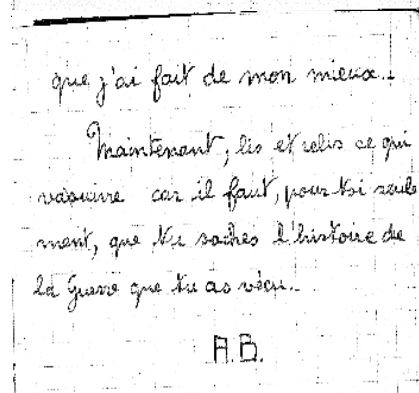 que j'ai fait de mon mieux.
Maintenant, lis et relis ce qui
car il faut, pour toi seule
ment, que tu saches l'histoire de
la Guerre que tu as vécu..
A.B.